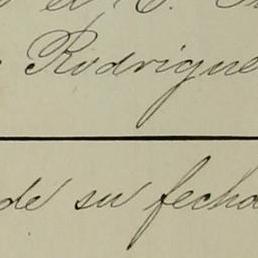 el C.
Rodrigue
de su fecha